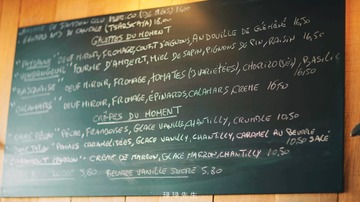 GALETTES DU MOMENT
"PAYSANNE" OEUF MIROIR, FROMAGE, CONFIT D'OIGNONS, ANDOUILLE DE GUÉMÉNÉ 16,50
FOURME D'AMBERT, MIEL DE SAPIN, PIGNONS DE PIN, RAISIN 16,50
"BASQUAISE" OEUF MIROIR, FROMAGE, TOMATES (3 VARIÉTÉES), CHORIZO (BIO), BASILIC 16,50
"CALAMARS" OEUF MIROIR, FROMAGE, ÉPINARDS, CALAMARS, CRÈME 16,50
CRÊPES DU MOMENT
PÊCHE, FRAMBOISES, GLACE VANILLE, CHANTILLY, CRUMBLE 10,50
CARAMÉLISÉES, GLACE VANILLE, CHANTILLY, CARAMEL AU BEURRE SALÉ 10,50
CRÈME DE MARRON, GLACE MARRON, CHANTILLY 10,50
3,80 BEURRE VANILLE SUCRE 5,80